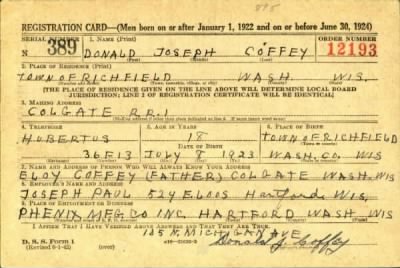 REGISTRATION CARD—(Men born on or after January 1, 1922 and on or before June 30, 1924)
SERIAL NUMBER 1. Name (Print) ORDER NUMBER
N 389 DONALD JOSEPH COFFEY 12193
(First) (Middle) (Last)
2. Place of Residence (Print)
TOWN OF RICHFIELD WASH. WIS.
(Number and street) (Town, township, village, or city) (County) (State)
[THE PLACE OF RESIDENCE GIVEN ON THE LINE ABOVE WILL DETERMINE LOCAL BOARD
JURISDICTION; LINE 2 OF REGISTRATION CERTIFICATE WILL BE IDENTICAL]
3. Mailing Address
COLGATE R.R.1
4. Telephone 5. Age in Years 6. Place of Birth
HUBERTUS 18 TOWN OF RICHFIELD
Date of Birth
36F13 JULY 8 1923 WASH. CO. WIS
7. Name and Address of Person Who Will Always Know Your Address
ELOY COFFEY (FATHER) COLGATE WASH. WIS
8. Employer's Name and Address
JOSEPH PAUL 524 E. Loos Hartford Wis.
9. Place of Employment or Business
PHENIX MFG. CO INC. HARTFORD WASH WIS
I Affirm That I Have Verified Above Answers and That They Are True.
105 N. MICHIGAN AVE
D. S. S. Form 1
Donald J. Coffey